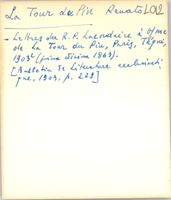 La Tour du Pin Renato LOL2
- Lettres du R. P. Lacordaire à Mme
de La Tour du Pin, Paris, Téqui,
1903² (prima edizione 1863).
[Bulletin de Littérature ecclésiasti-
que, 1903, p. 228]